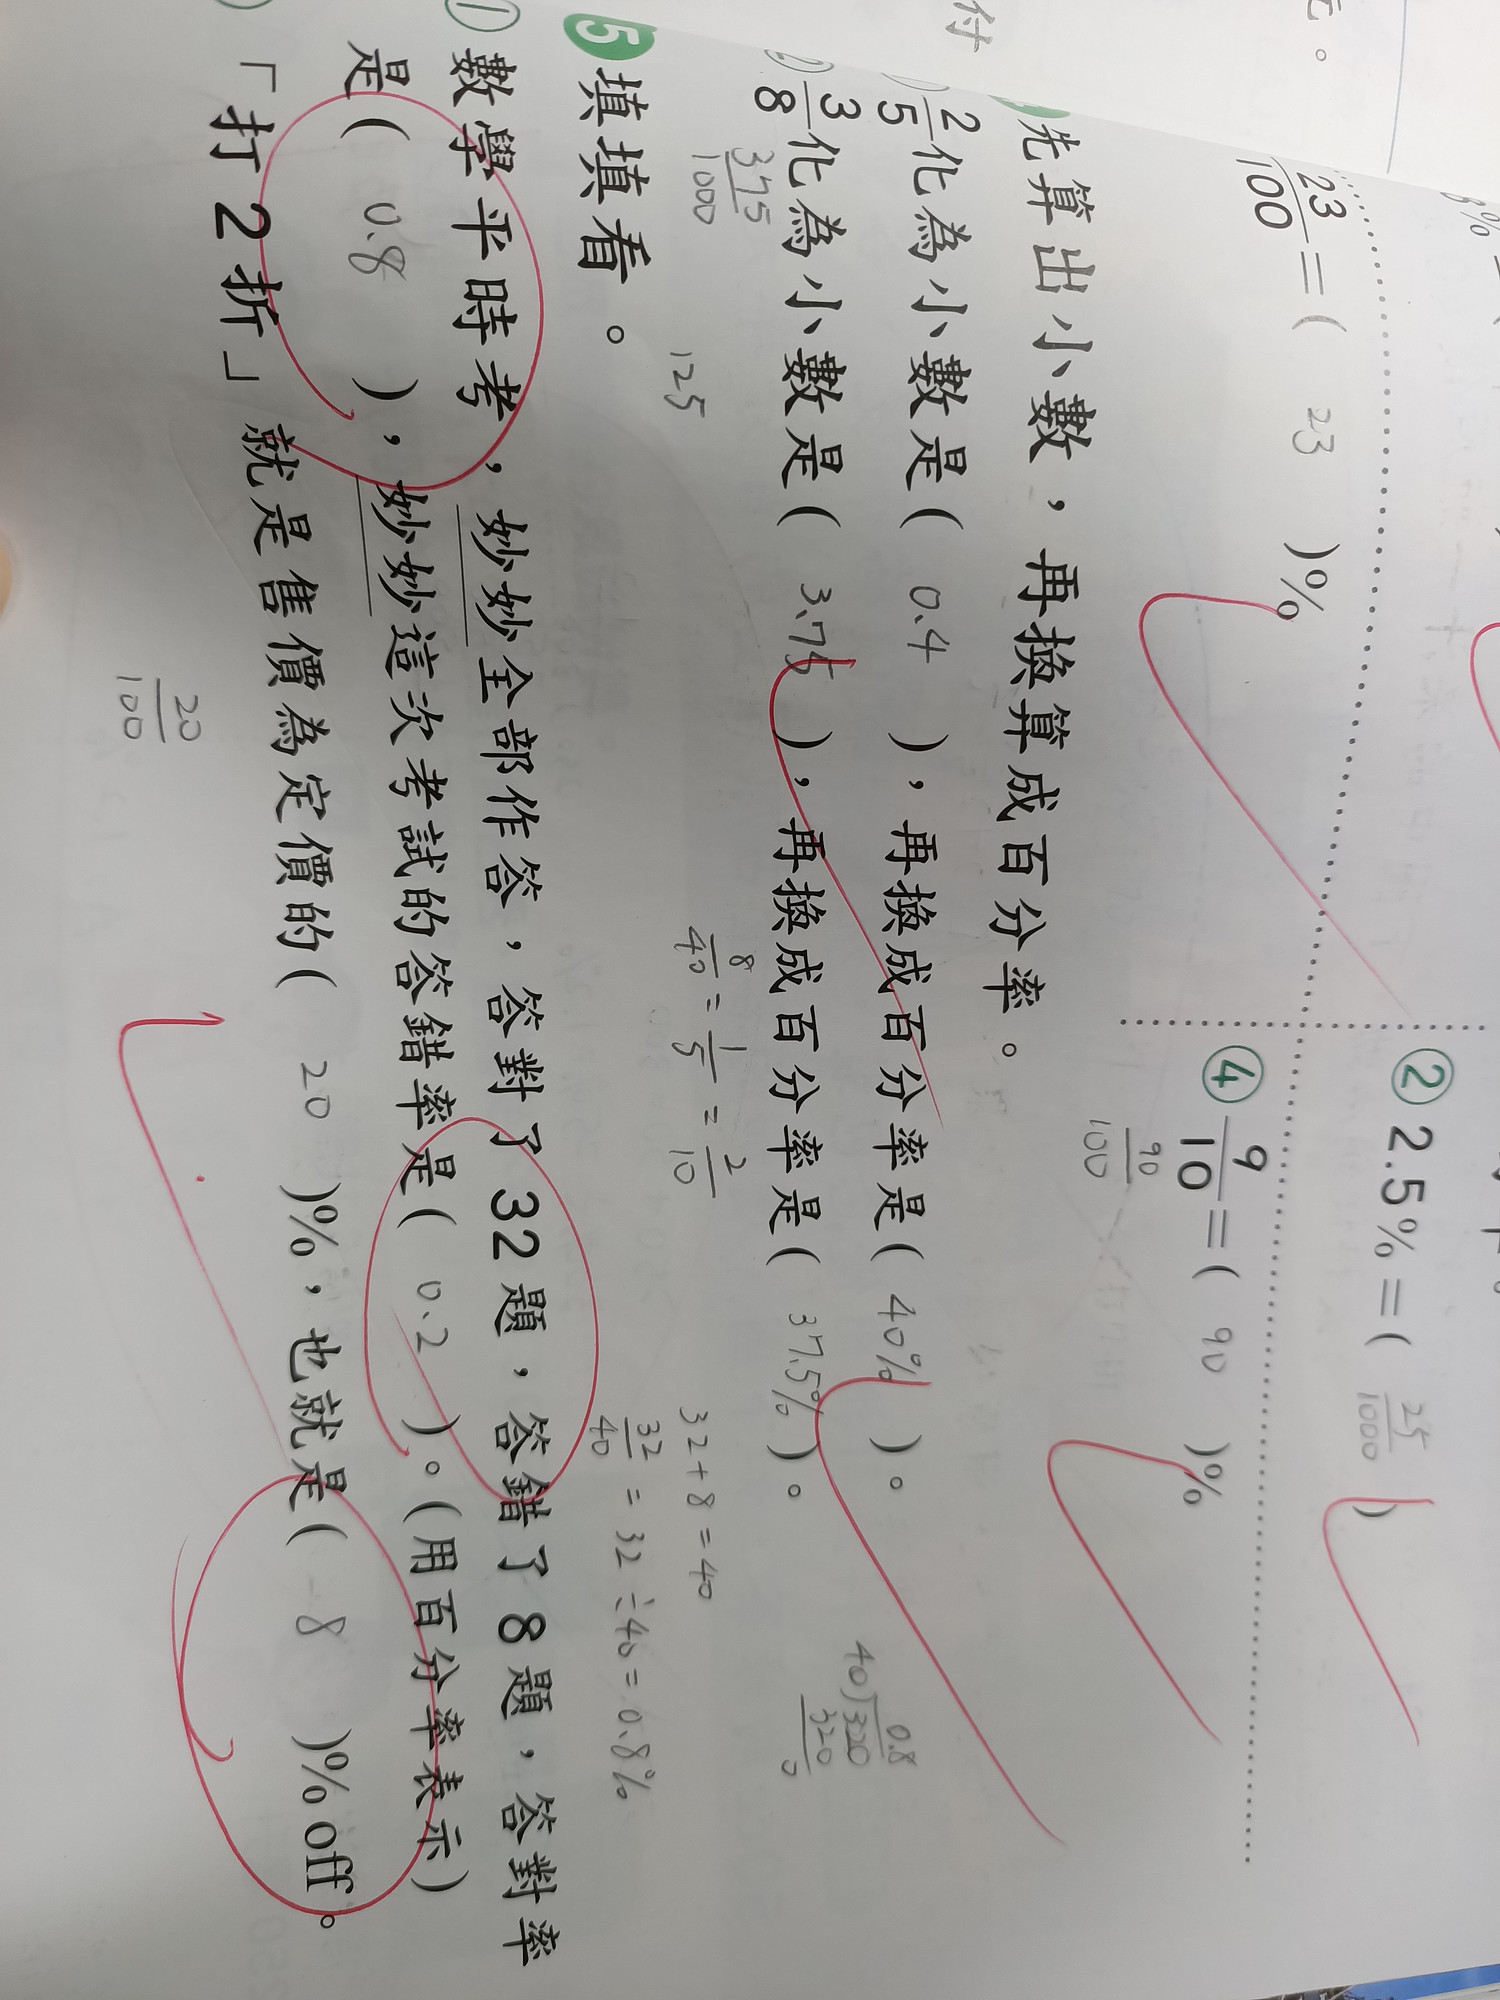 元。
付
② 2.5% = ( 25/1000 )
23/100 = ( 23 )%
④ 9/10 = ( 90 )%
90/100
先算出小數，再換算成百分率。
2/5化為小數是( 0.4 )，再換成百分率是( 40% )。
② 3/8化為小數是( 3.75 )，再換成百分率是( 37.5% )。
375/1000
125
8/40 = 1/5 = 2/10
40)320
0.8
320
0
32+8=40
32/40 = 32÷40=0.8%
5 填填看。
① 數學平時考，妙妙全部作答，答對了32題，答錯了8題，答對率
是( 0.8 )，妙妙這次考試的答錯率是( 0.2 )。(用百分率表示)
「打2折」就是售價為定價的( 20 )%，也就是( 8 )% off。
20/100